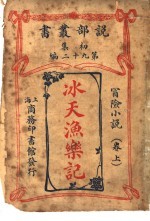 說部叢書
初集
第九十二編
冒險小說
（卷上）
冰天漁樂記
上海
商務印書館發行